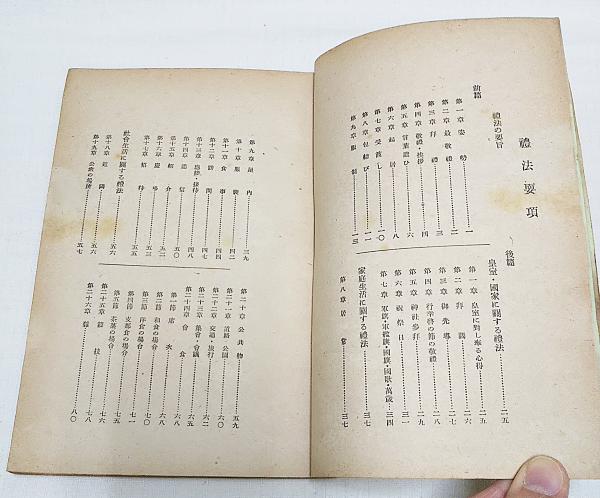 禮法要項
前篇
禮法の要旨
第一章 姿勢………一
第二章 最敬禮………一
第三章 拜禮………三
第四章 敬禮・挨拶………四
第五章 言葉遣ひ………六
第六章 起居………八
第七章 受渡し………一〇
第八章 包結び………一一
第九章 服制………一三
後篇
皇室・國家に關する禮法
第一章 皇室に對し奉る心得………二五
第二章 拜謁………二六
第三章 御先導………二七
第四章 行幸啓の節の敬禮………二八
第五章 神社參拜………二九
第六章 祝祭日………三一
第七章 軍旗・軍艦旗・國旗・國歌・萬歲………三四
家庭生活に關する禮法
第八章 居常………三七
第九章 屋內………三九
第十章 服裝………四二
第十一章 食事………四四
第十二章 訪問………四七
第十三章 應接・接待………四八
第十四章 通信………五〇
第十五章 紹介………五二
第十六章 慶弔………五三
第十七章 招待………五五
社會生活に關する禮法………五六
第十八章 近隣………五六
第十九章 公衆の場所………五七
第二十章 公共物………五九
第二十一章 道路・公園………六〇
第二十二章 交通・旅行………六二
第二十三章 集會・會議………六五
第二十四章 會食………六八
第一節 席次………六八
第二節 和食の場合………六八
第三節 洋食の場合………七〇
第四節 支那食の場合………七一
第五節 茶菓の場合………七五
第二十五章 競技………七六
第二十六章 雜………七八
八〇